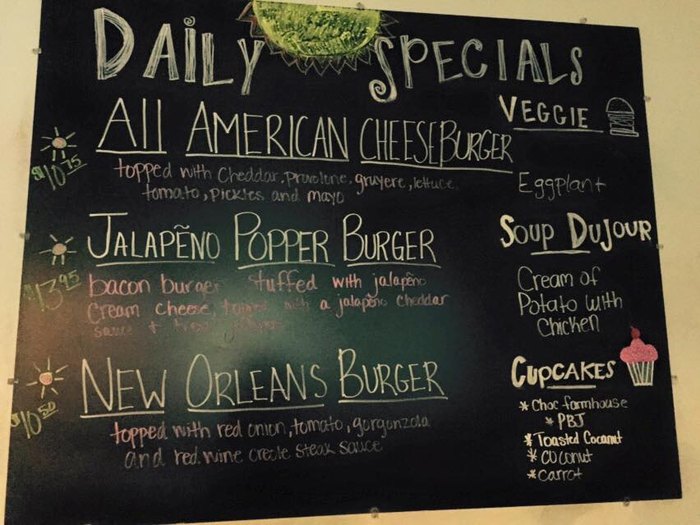 DAILY SPECIALS
All AMERICAN CHEESEBURGER
$10.75
topped with Cheddar, Provolone, gruyere, lettuce,
tomato, pickles and mayo
JALAPEÑO POPPER BURGER
$13.95
bacon burger stuffed with jalapeño
cream cheese, topped with a jalapeño cheddar
sauce +
NEW ORLEANS BURGER
$10.50
topped with red onion, tomato, gorgonzola
and red wine creole steak sauce
VEGGIE
Eggplant
SOUP DUJOUR
Cream of
Potato with
Chicken
CUPCAKES
* Choc farmhouse
* PBJ
* Toasted Coconut
* COConut
* carrot